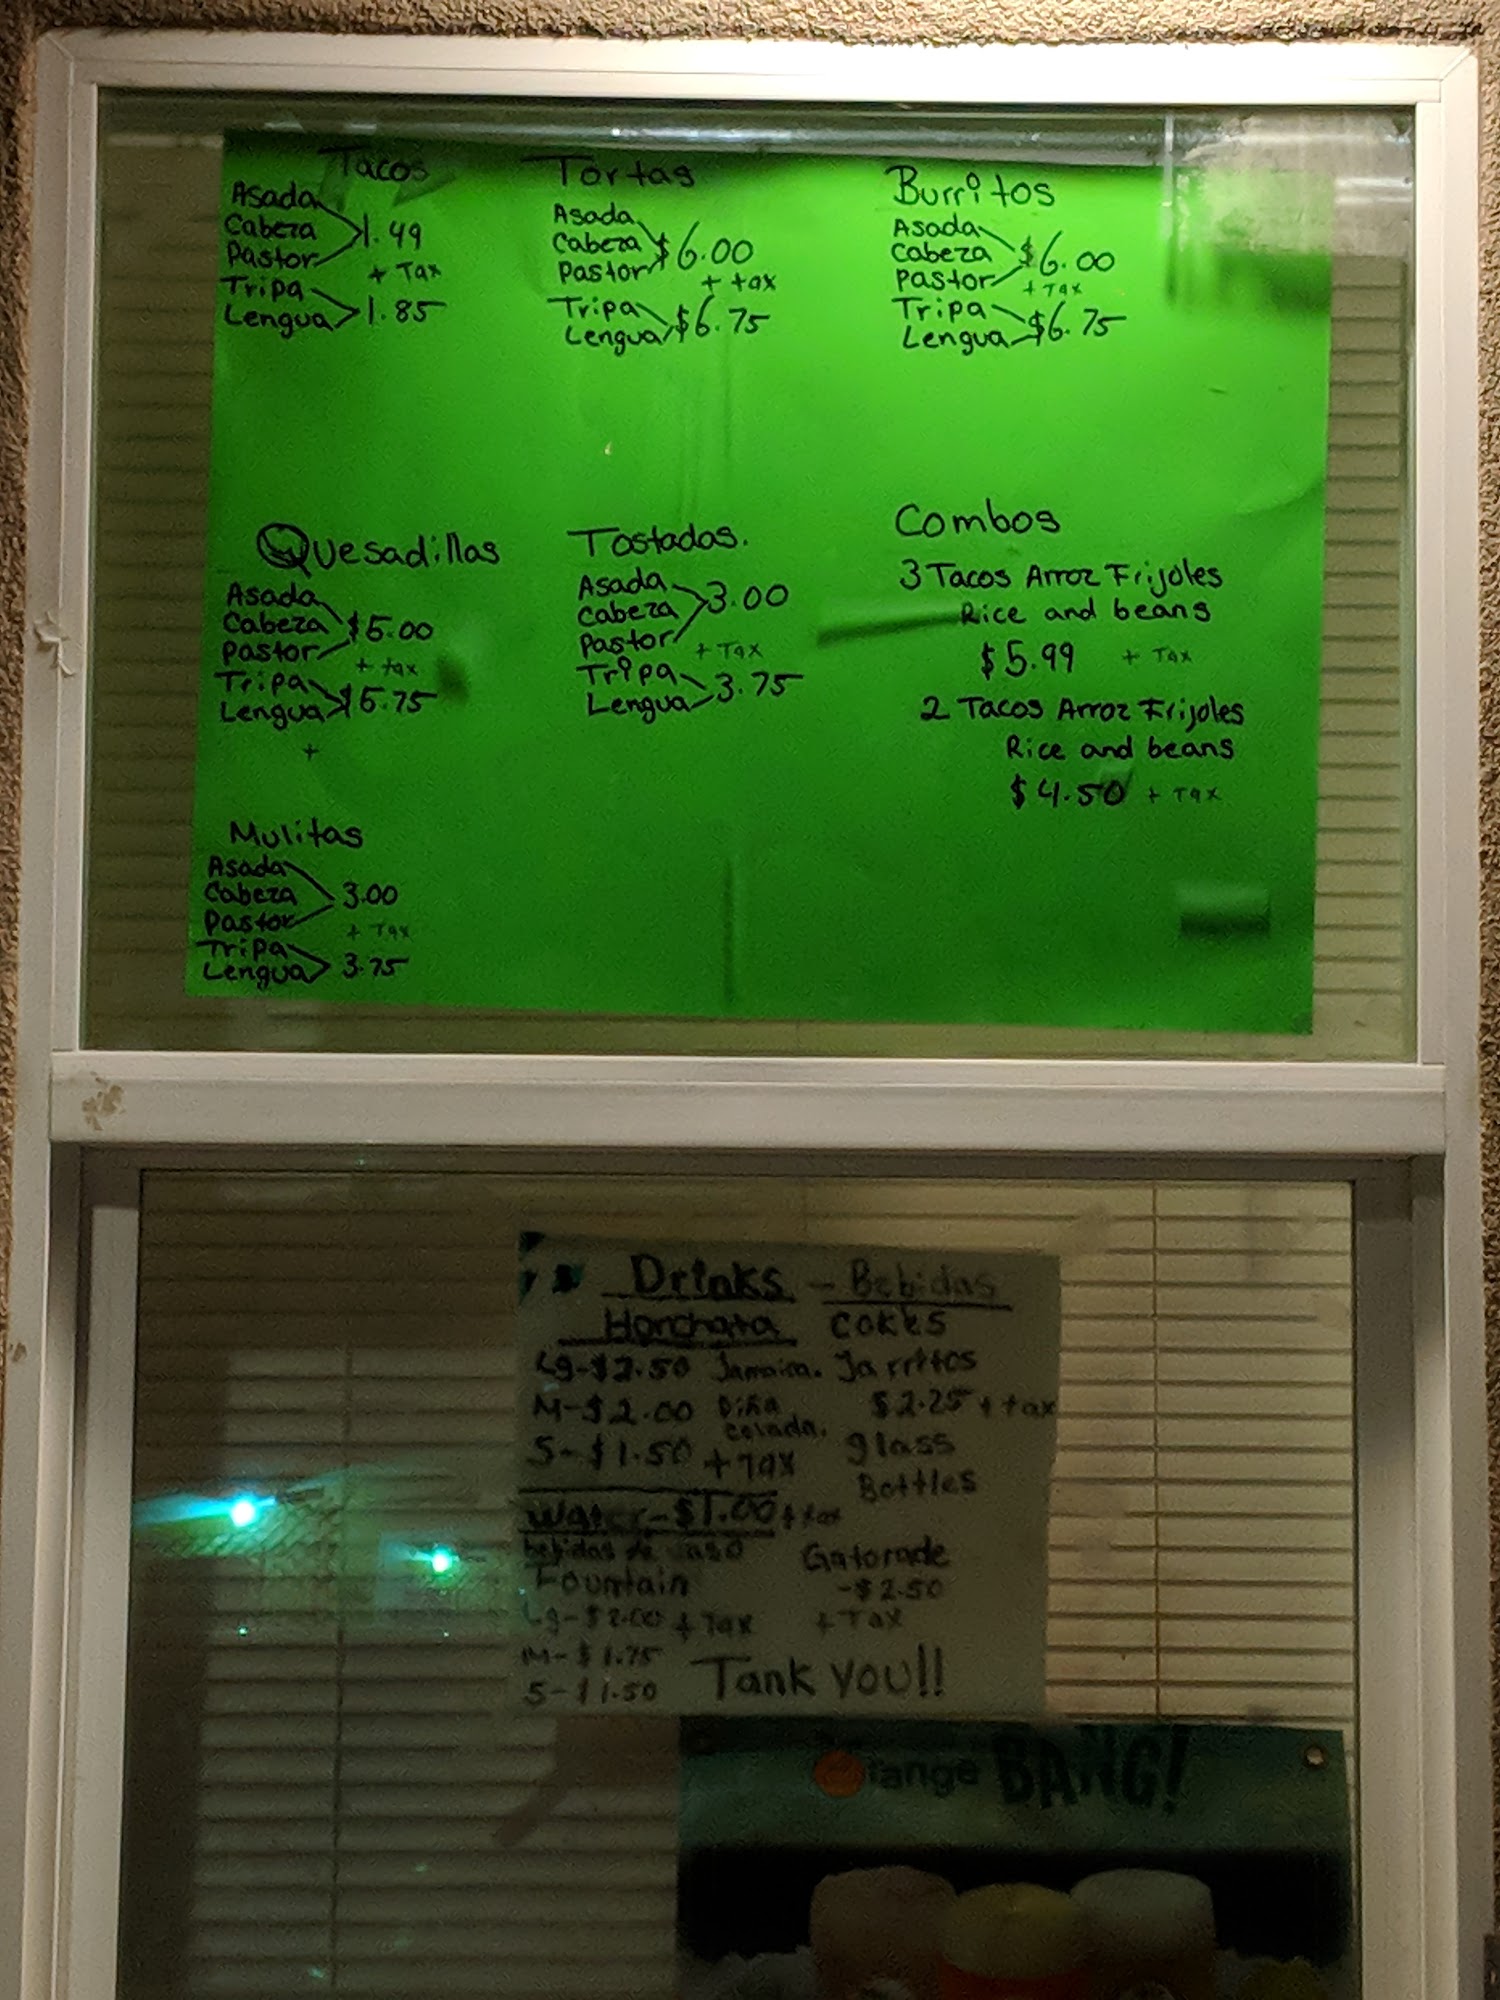 Tacos
Asada
Cabeza 1.49
Pastor
+ Tax
Tripa
Lengua 1.85
Tortas
Asada
Cabeza $6.00
Pastor
+ tax
Tripa
Lengua $6.75
Burritos
Asada
Cabeza $6.00
Pastor
+ Tax
Tripa
Lengua $6.75
Quesadillas
Asada
Cabeza $5.00
Pastor
+ tax
Tripa
Lengua $5.75
+
Tostadas.
Asada
Cabeza 3.00
Pastor
+ Tax
Tripa
Lengua 3.75
Combos
3 Tacos Arroz Frijoles
Rice and beans
$5.99 + Tax
2 Tacos Arroz Frijoles
Rice and beans
$4.50 + Tax
Mulitas
Asada
Cabeza 3.00
Pastor
+ Tax
Tripa
Lengua 3.75
Drinks - Bebidas
Horchata cokes
Lg-$2.50 Jamaica. Jarritos
M-$2.00 Piña $2.25 + tax
colada.
S-$1.50 + Tax glass
Bottles
Water-$1.00 + tax
bebidas de vaso Gatorade
Fountain -$2.50
Lg-$2.00 + Tax + Tax
M-$1.75
S-$1.50 Tank you!!
Orange BANG!